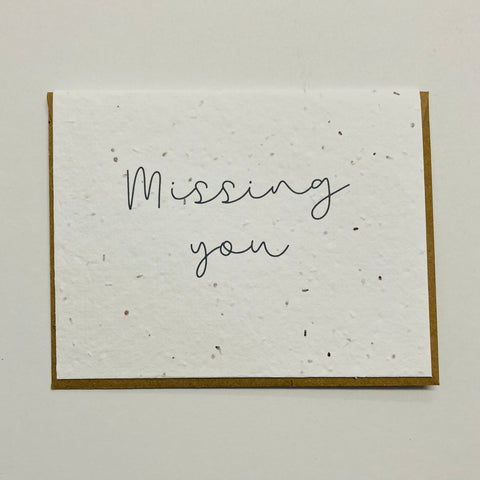 Missing
you